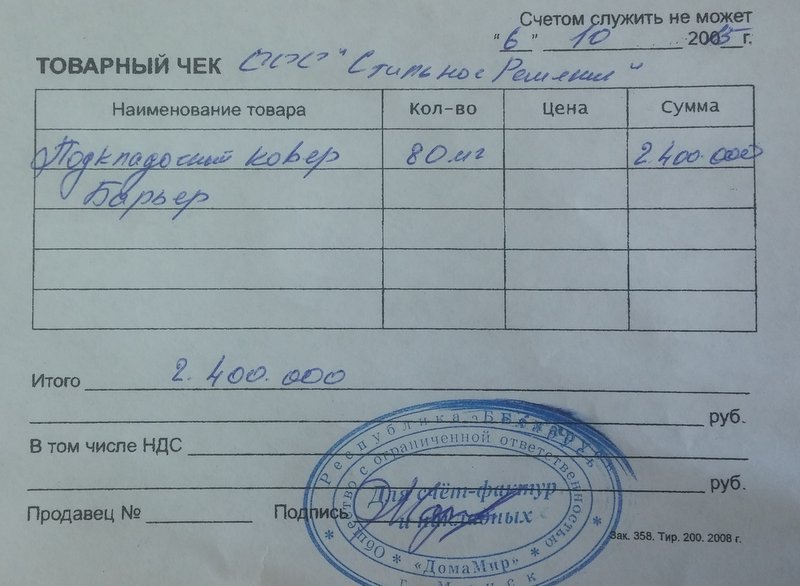 Счетом служить не может
"6" 10 2005 г.
ТОВАРНЫЙ ЧЕК ООО "Стильное Решение"
Наименование товара Кол-во Цена Сумма
Подкладочный ковер 80 мг 2.400.000
Барьер
Итого 2.400.000
руб.
В том числе НДС
руб.
Продавец № Подпись
Республика Беларусь
Общество с ограниченной ответственностью
Для счёт-фактур
и накладных
«ДомаМир»
г. Минск
Зак. 358. Тир. 200. 2008 г.